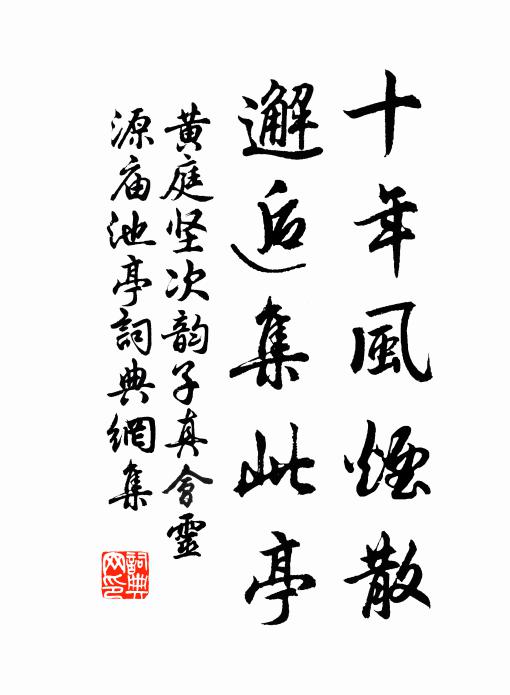 十年風煙散
邂逅集此亭
黃庭坚次韵子真會靈
源庙池亭詞典網集
詞典網印